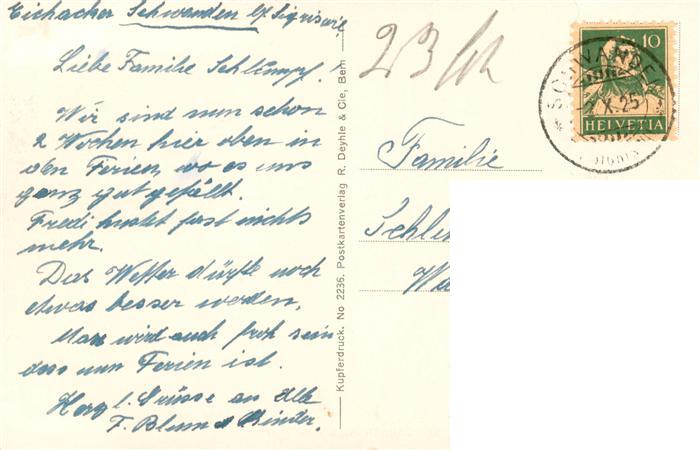 Eichacher Schwanden b/Sigriswil
Liebe Familie Schlumpf!
Wir sind nun schon
2 Wochen hier oben in
den Ferien, wo es uns
ganz gut gefällt.
Fredi hustet fast nichts
mehr.
Das Wetter dürfte noch
etwas besser werden.
Max wird auch froh sein
dass nun Ferien ist.
Herzl. Grüsse an alle
F. Blum & Kinder.
Kupferdruck. No 2236. Postkartenverlag R. Deyhle & Cie, Bern
23
10
HELVETIA
SCHWANDEN
X.25
Familie
Schlu